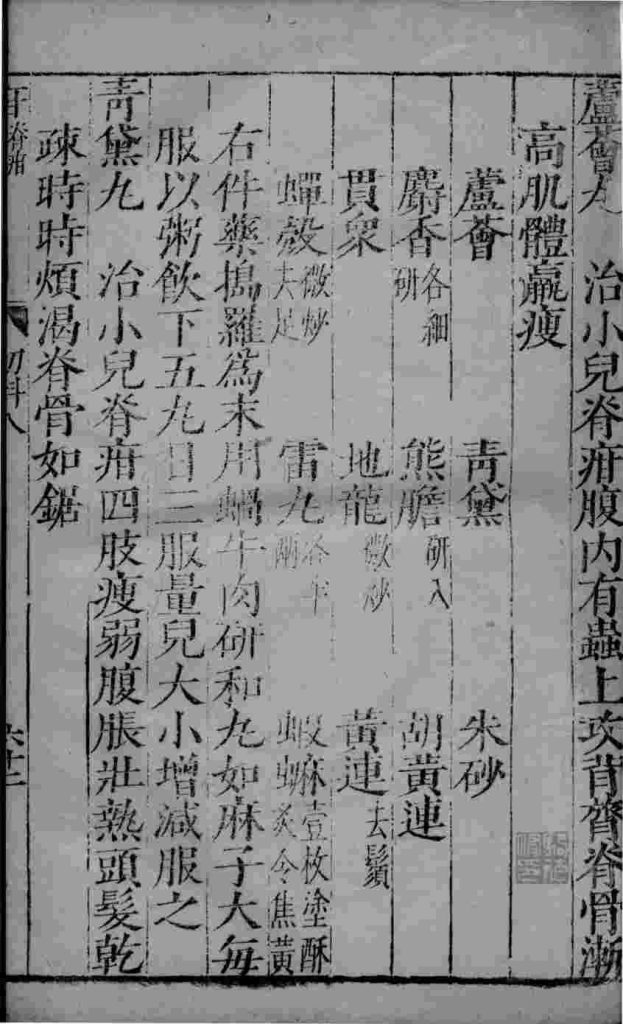 蘆薈丸 治小兒脊疳腹内有蟲上攻背膂脊骨漸
高肌體羸瘦
蘆薈 青黛 朱砂
麝香各細研 熊膽研入 胡黄連
貫衆 地龍微炒 黄連去鬚
蟬殼微炒去足 雷丸各半兩 蝦蟆壹枚塗酥炙令焦黄
右件藥搗羅爲末用蝸牛肉研和丸如麻子大每
服以粥飲下五丸日三服量兒大小增減服之
青黛丸 治小兒脊疳四肢瘦弱腹脹壯熱頭髮乾
疎時時煩渴脊骨如鋸
幼科八 六十二